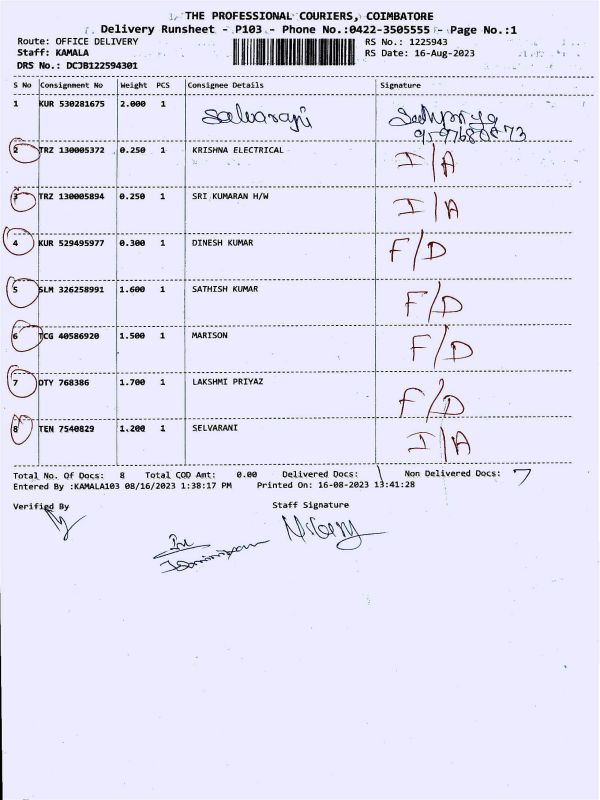 THE PROFESSIONAL COURIERS, COIMBATORE
Delivery Runsheet - P103 - Phone No.:0422-3505555 - Page No.:1
Route: OFFICE DELIVERY RS No.: 1225943
Staff: KAMALA RS Date: 16-Aug-2023
DRS No.: DCJB122594301
S No Consignment No Weight PCS Consignee Details Signature
1 KUR 530281675 2.000 1 Selvarani
2 TRZ 130005372 0.250 1 KRISHNA ELECTRICAL I/A
3 TRZ 130005894 0.250 1 SRI KUMARAN H/W I/A
4 KUR 529495977 0.300 1 DINESH KUMAR F/D
5 SLM 326258991 1.600 1 SATHISH KUMAR F/D
6 TCG 40586920 1.500 1 MARISON F/D
7 DTY 768386 1.700 1 LAKSHMI PRIYAZ F/D
8 TEN 7540829 1.200 1 SELVARANI I/A
Total No. Of Docs: 8 Total COD Amt: 0.00 Delivered Docs: 1 Non Delivered Docs: 7
Entered By :KAMALA103 08/16/2023 1:38:17 PM Printed On: 16-08-2023 13:41:28
Verified By Staff Signature